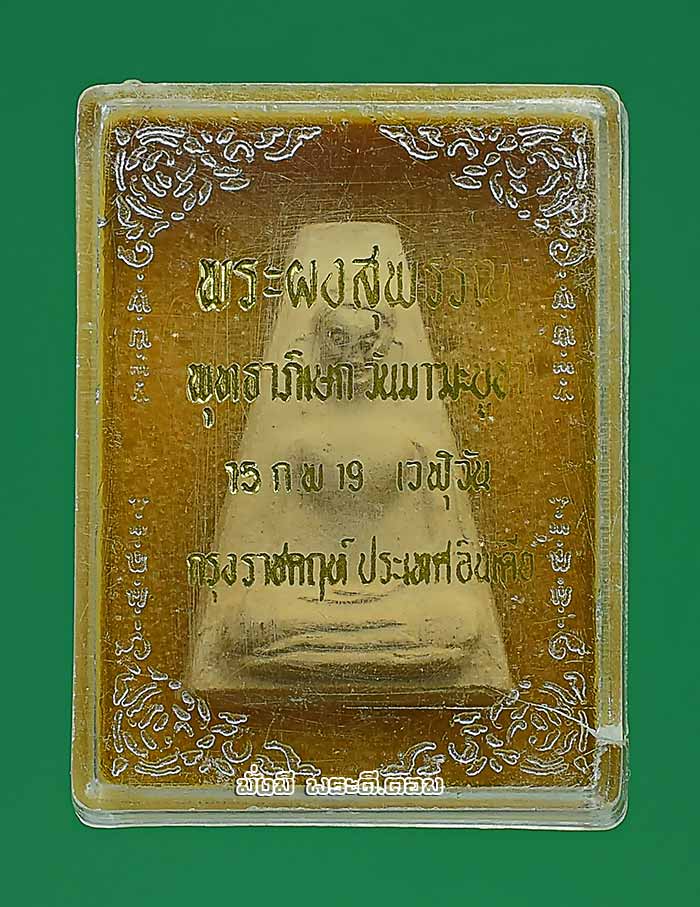 พระผงสุพรรณ
พุทธาภิเษก วันมาฆะบูชา
15 ก พ 19 เวฬุวัน
กรุงราชคฤห์ ประเทศอินเดีย
มั่งมี พระดี.คอม